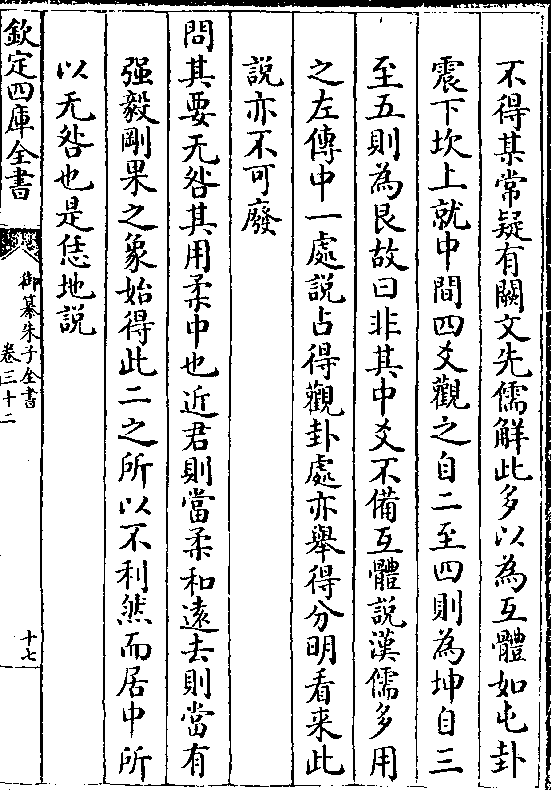 不得某常疑有闕文先儒觧此多以為互體如屯卦
震下坎上就中間四爻觀之自二至四則為坤自三
至五則為艮故曰非其中爻不備互體説漢儒多用
之左傳中一處説占得觀卦處亦舉得分明看来此
説亦不可廢
問其要无咎其用柔中也近君則當柔和逺去則當有
强毅剛果之象始得此二之所以不利然而居中所
以无咎也是恁地説
欽定四庫全書
御纂朱子全書
卷三十二
十七